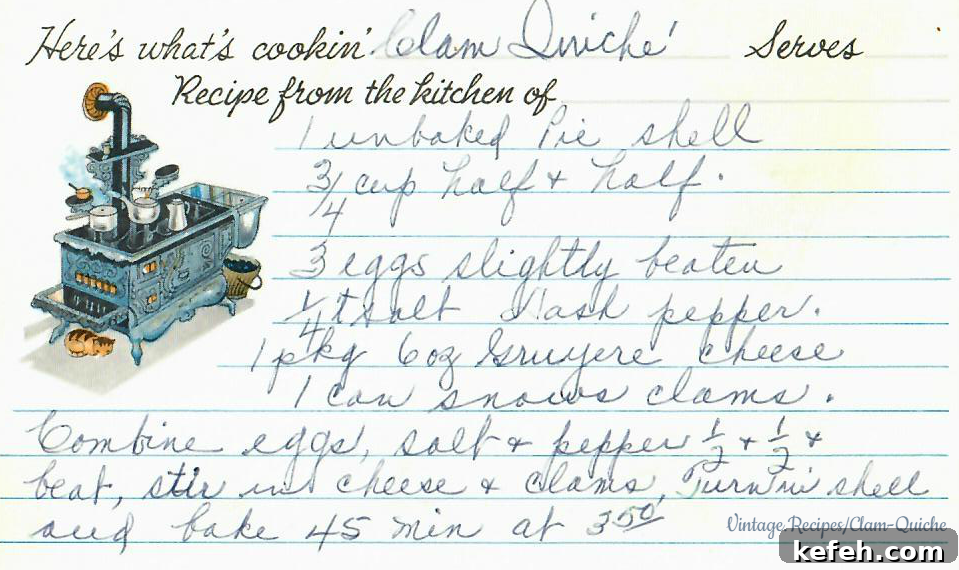 Here's what's cookin' Clam Quiche' Serves
Recipe from the kitchen of
1 unbaked Pie shell
3/4 cup half + half.
3 eggs slightly beaten
1/4 t salt dash pepper.
1 pkg 6 oz Gruyere cheese
1 can snows clams.
Combine eggs, salt + pepper 1/2 + 1/2 +
beat, stir in cheese + clams, Turn in shell
and bake 45 min at 350
Vintage.Recipes/Clam-Quiche
kefeh.com